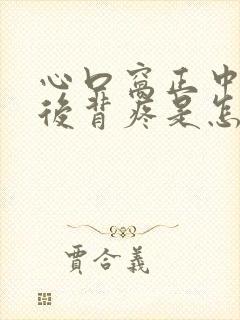 心口窝正中
後背疼是怎
賈合義